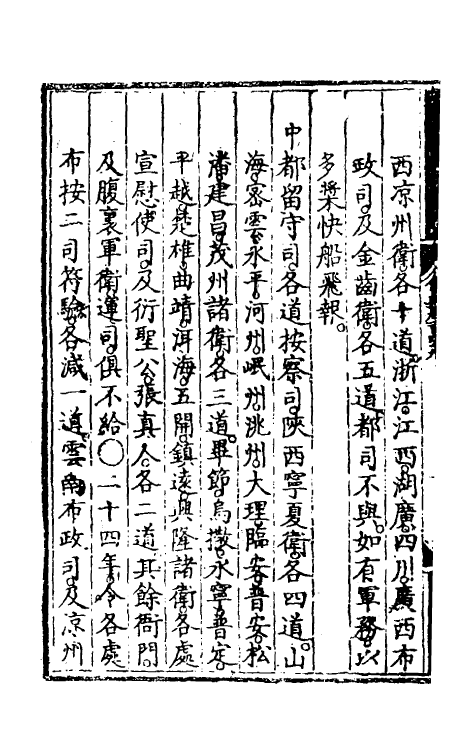 西凉州衛各十道。浙江。江西。湖廣。四川。廣西布
政司。及金齒衛。各五道。都司不與。如有軍務。以
多槳快船飛報。
中都留守司。各道按察司。陝西寧夏衛。各四道。山
海。密雲。永平。河州。岷州。洮州。大理。臨安。普安。松
潘。建昌。茂州諸衛。各三道。畢節。烏撒。永寧。普定。
平越。楚雄。曲靖。洱海。五開。鎮遠。興隆諸衛。各處
宣慰使司。及衍聖公。張真人。各二道。其餘衙門。
及腹裏軍衛運司。俱不給○二十四年。令各處
布按二司符驗。各減一道。雲南布政司。及凉州